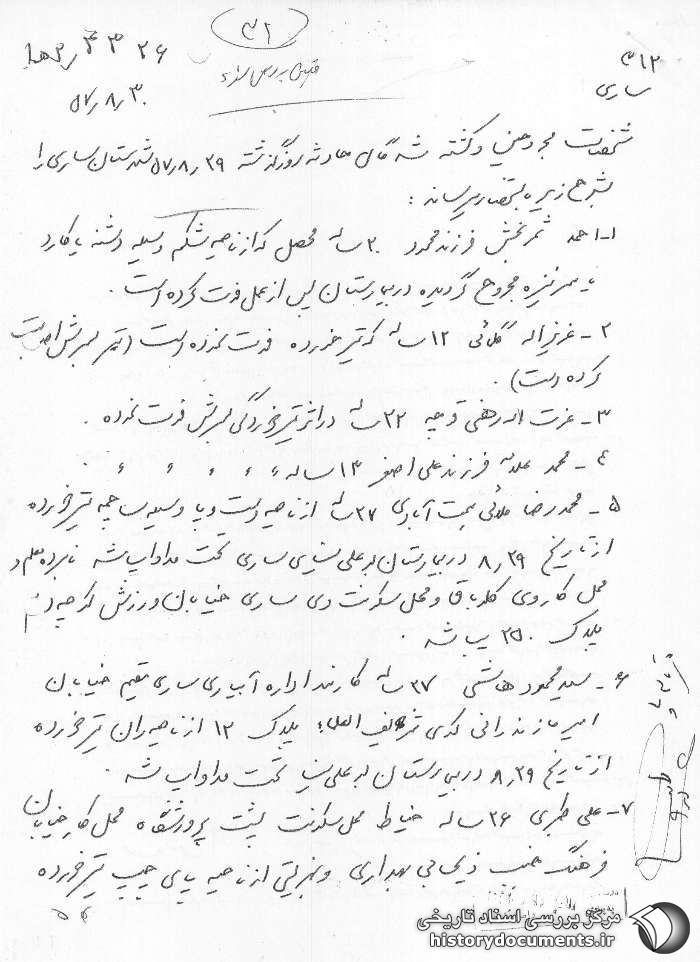 ۳۱
۳۱۲
ساری
۵۷٫۸٫۳۰
مشخصات مجروحین و کشته شدگان حادثه روز گذشته ۵۷٫۸٫۲۹ شهرستان ساری را
بشرح زیر باستحضار میرساند :
۱- احمد ثمربخش فرزند محمود ۲۰ ساله محصل که از ناحیه شکم وسیله دشنه یا کارد
یا سرنیزه مجروح گردیده در بیمارستان پس از عمل فوت کرده است .
۲- عزیزاله گلائی ۱۲ ساله که تیر خورده فوت نموده است (تیر بسرش اصابت
کرده است) .
۳- عزت اله رضی ۲۲ ساله در اثر تیرخوردگی بسرش فوت نموده .
۴- محمد فرزند علی اصغر ۱۳ ساله ״ ״ ״ ״ ״
۵- محمدرضا ملائی آبادی ۲۷ ساله از ناحیه دست و پا وسیله ساچمه تیر خورده
از تاریخ ۸٫۲۹ در بیمارستان بوعلی سینای ساری تحت مداوا میباشد نامبرده معلم و
محل کار وی و محل سکونت وی ساری خیابان ورزش کوچه
پلاک ۲۵۰ میباشد .
۶- سید محمود هاشمی ۳۷ ساله کارمند اداره آبیاری ساری مقیم خیابان
امیر مازندرانی کوی شریف العلماء پلاک ۱۲ از ناحیه ران تیر خورده
از تاریخ ۸٫۲۹ در بیمارستان بوعلی سینا تحت مداوا میباشد .
۷- علی طبری ۲۶ ساله خیاط محل سکونت پشت پرورشگاه محل کار خیابان
فرهنگ جنب بهداری از ناحیه پای چپ تیر خورده
مرکز بررسی اسناد تاریخی
historydocuments.ir